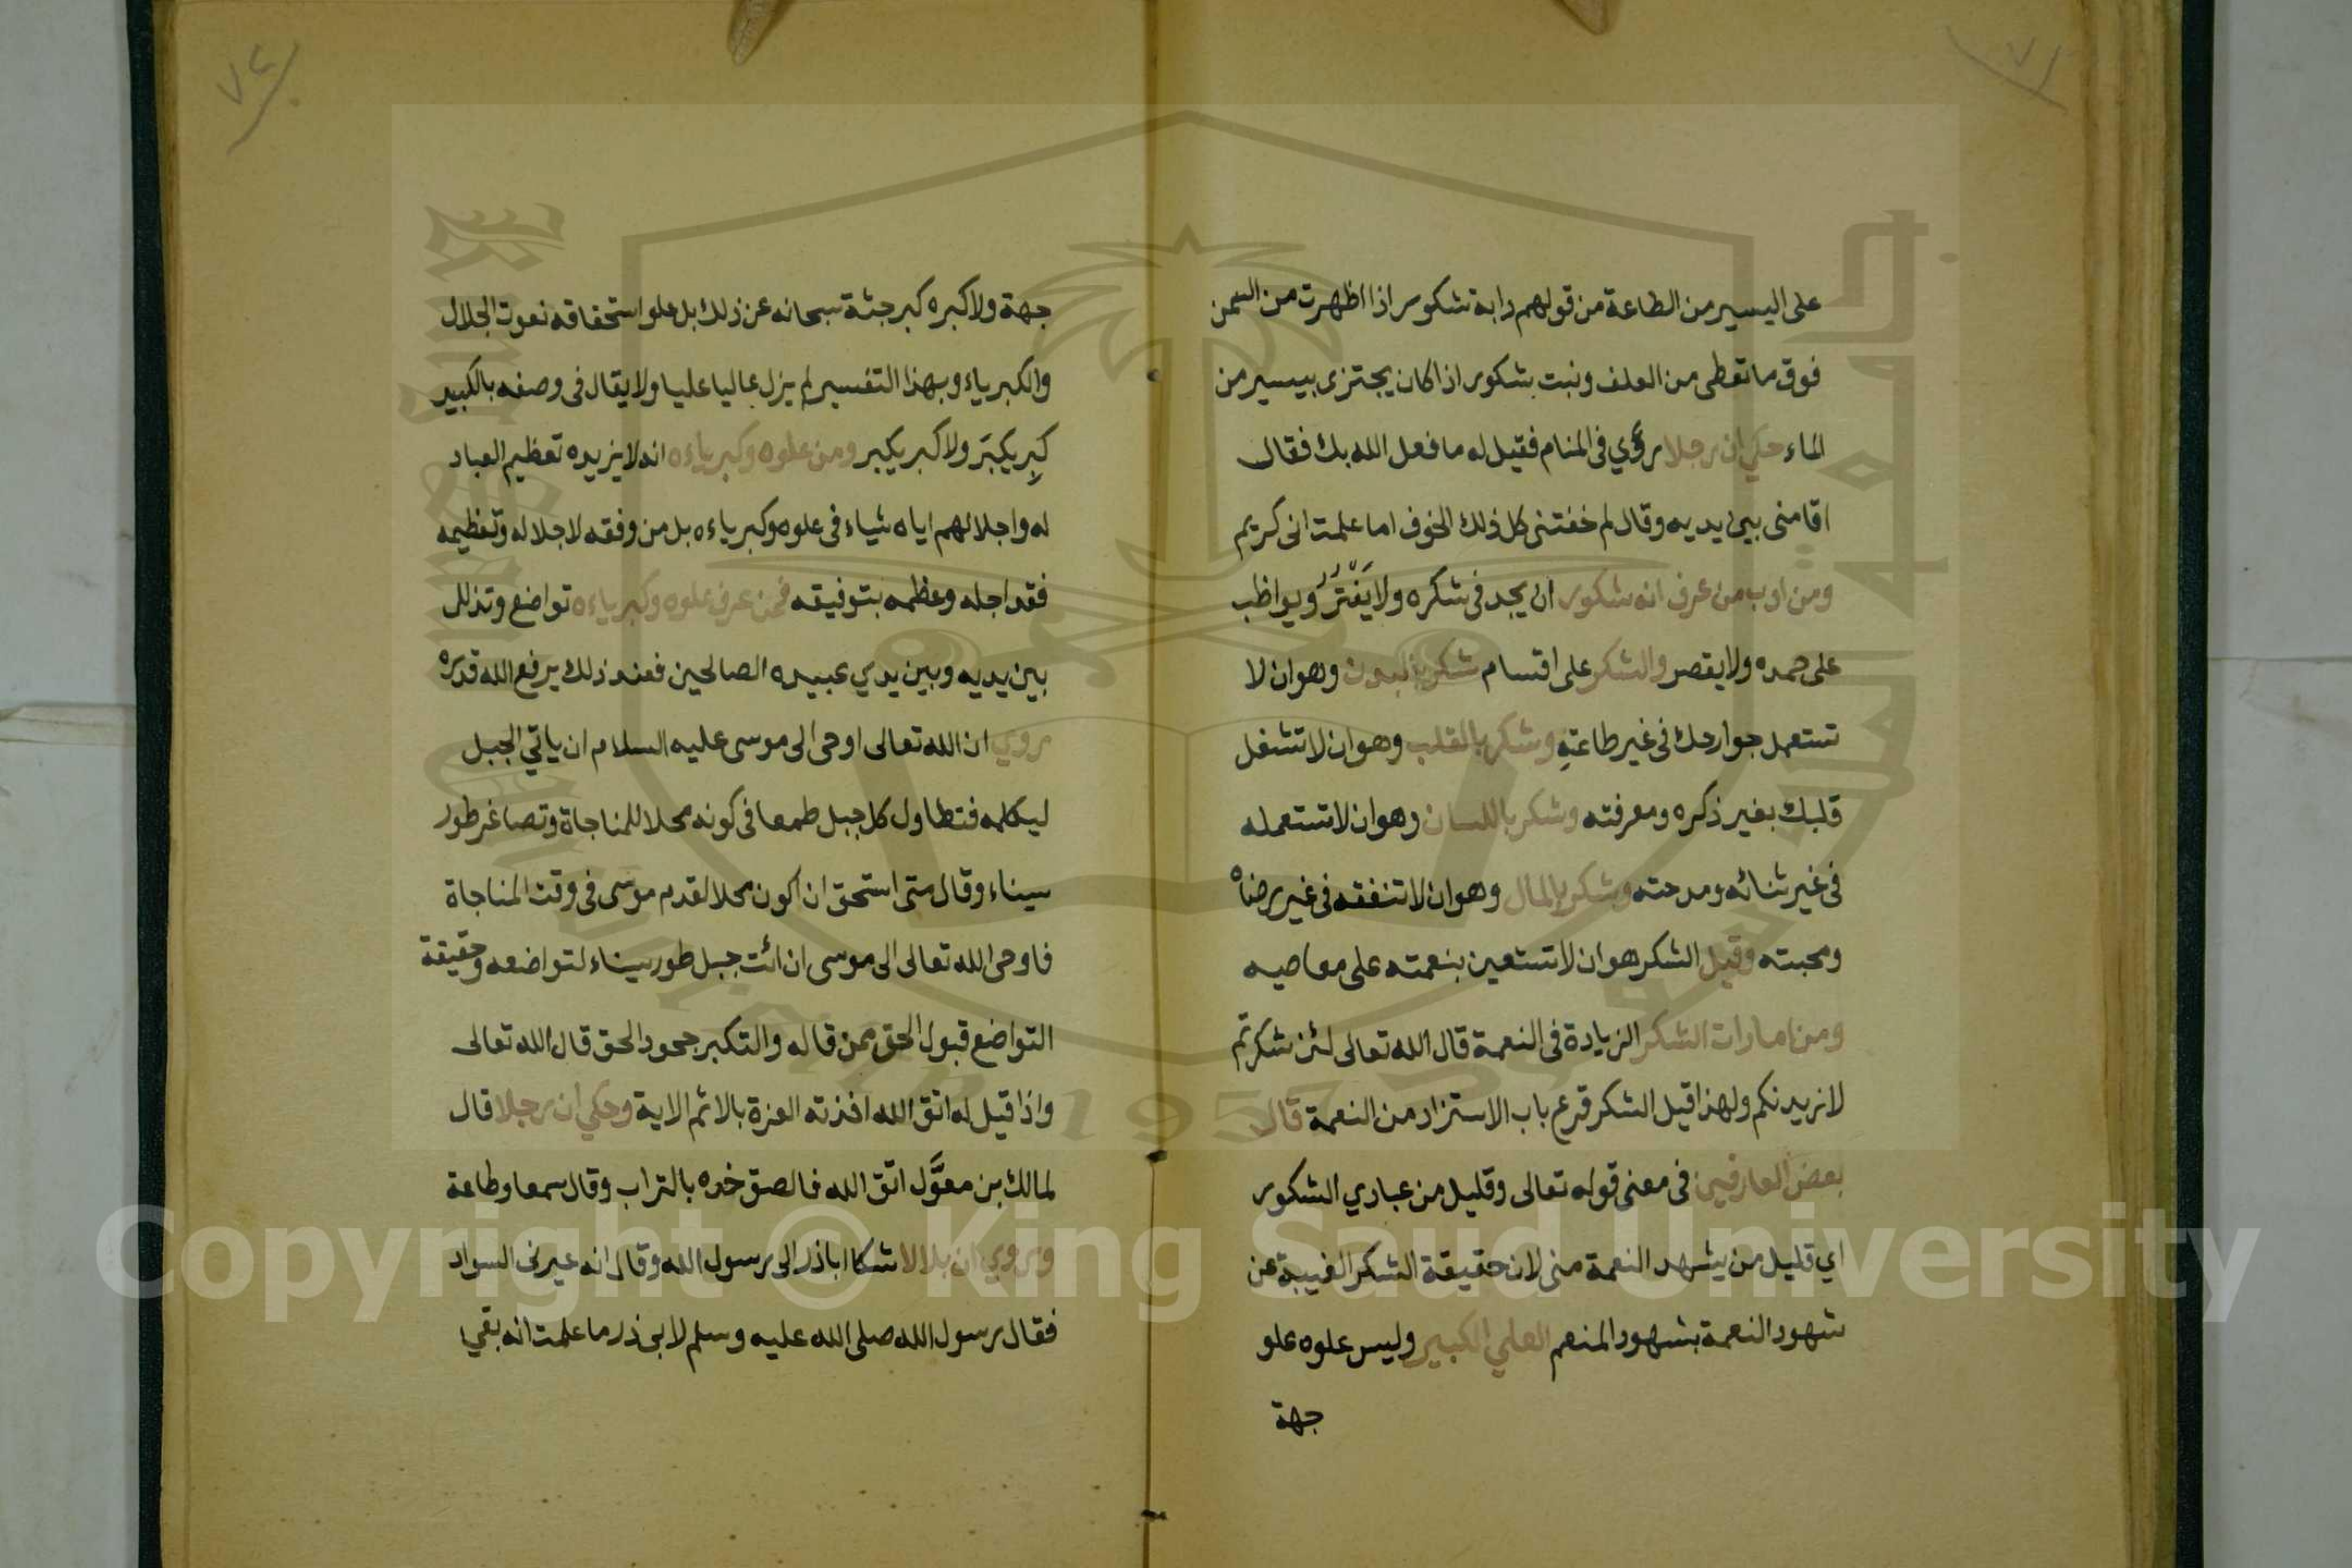 ٧١
على اليسير من الطاعة من قولهم دابة شكور اذا اظهرت من السمن
فوق ما تعطى من العلف ونبت بشكور اذا كان يجتزى بيسير من
الماء حكي ان رجلا رؤي في المنام فقيل له ما فعل الله بك فقال
اقامنى بين يديه وقال لم خفتنى كل ذلك الخوف اما علمت انى كريم
ومن ادب من عرف انه شكور ان يجد في شكره ولا يفتر ويواظب
على حمده ولا يقصر والشكر على اقسام شكر بالبدن وهو ان لا
تستعمل جوارحك في غير طاعته وشكر بالقلب وهو ان لا تشغل
قلبك بغير ذكره ومعرفته وشكر باللسان وهو ان لا تستعمله
في غير ثنائه ومدحته وشكر بالمال وهو ان لا تنفقه في غير رضاه
ومحبته وقيل الشكر هو ان لا تستعين بنعمته على معاصيه
ومن امارات الشكر الزيادة في النعمة قال الله تعالى لئن شكرتم
لازيدنكم ولهذا قيل الشكر قرع باب الاستزاد من النعمة قال
بعض العارفين في معنى قوله تعالى وقليل من عبادي الشكور
اي قليل من يشهد النعمة منى لان حقيقة الشكر الغيبة عن
شهود النعمة بشهود المنعم العلي الكبير وليس علوه علو
جهة
٧٢
جهة ولا كبره كبر جثة سبحانه عن ذلك بل علو استحقاقه نعوت الجلال
والكبرياء وبهذا التفسير لم يزل عاليا عليا ولا يقال في وصفه بالكبير
كبِر يكبَر ولا كبر يكبر ومن علوه وكبرياءه انه لا يزيده تعظيم العباد
له واجلالهم اياه شياء في علوه وكبرياءه بل من وفقه لاجلاله وتعظيمه
فقد اجله وعظمه بتوفيقه فمن عرف علوه وكبرياءه تواضع وتذلل
بين يديه وبين يدي عبيده الصالحين فعند ذلك يرفع الله قدره
روي ان الله تعالى اوحى الى موسى عليه السلام ان ياتي الجبل
ليكلمه فتطاول كل جبل طمعا في كونه محلا للمناجاة وتصاغر طور
سيناء وقال متى استحق ان اكون محلا لقدم موسى في وقت المناجاة
فاوحى الله تعالى الى موسى ان ائت جبل طور سيناء لتواضعه وحقيقة
التواضع قبول الحق ممن قاله والتكبر جحود الحق قال الله تعالى
واذا قيل له اتق الله اخذته العزة بالاثم الاية وحكي ان رجلا قال
لمالك بن معوَّل اتق الله فالصق خده بالتراب وقال سمعا وطاعة
وروي ان بلالا شكا اباذر الى رسول الله وقال انه عيرنى السواد
فقال رسول الله صلى الله عليه وسلم لابى ذر ما علمت انه بقي
Copyright © King Saud University
1957